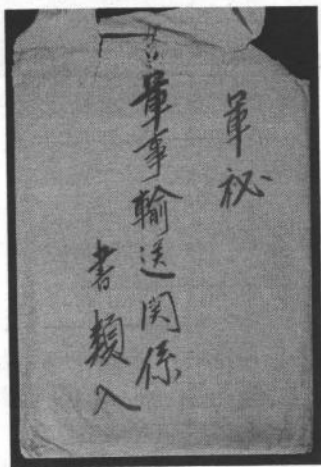 軍秘
軍事輸送関係
書類入